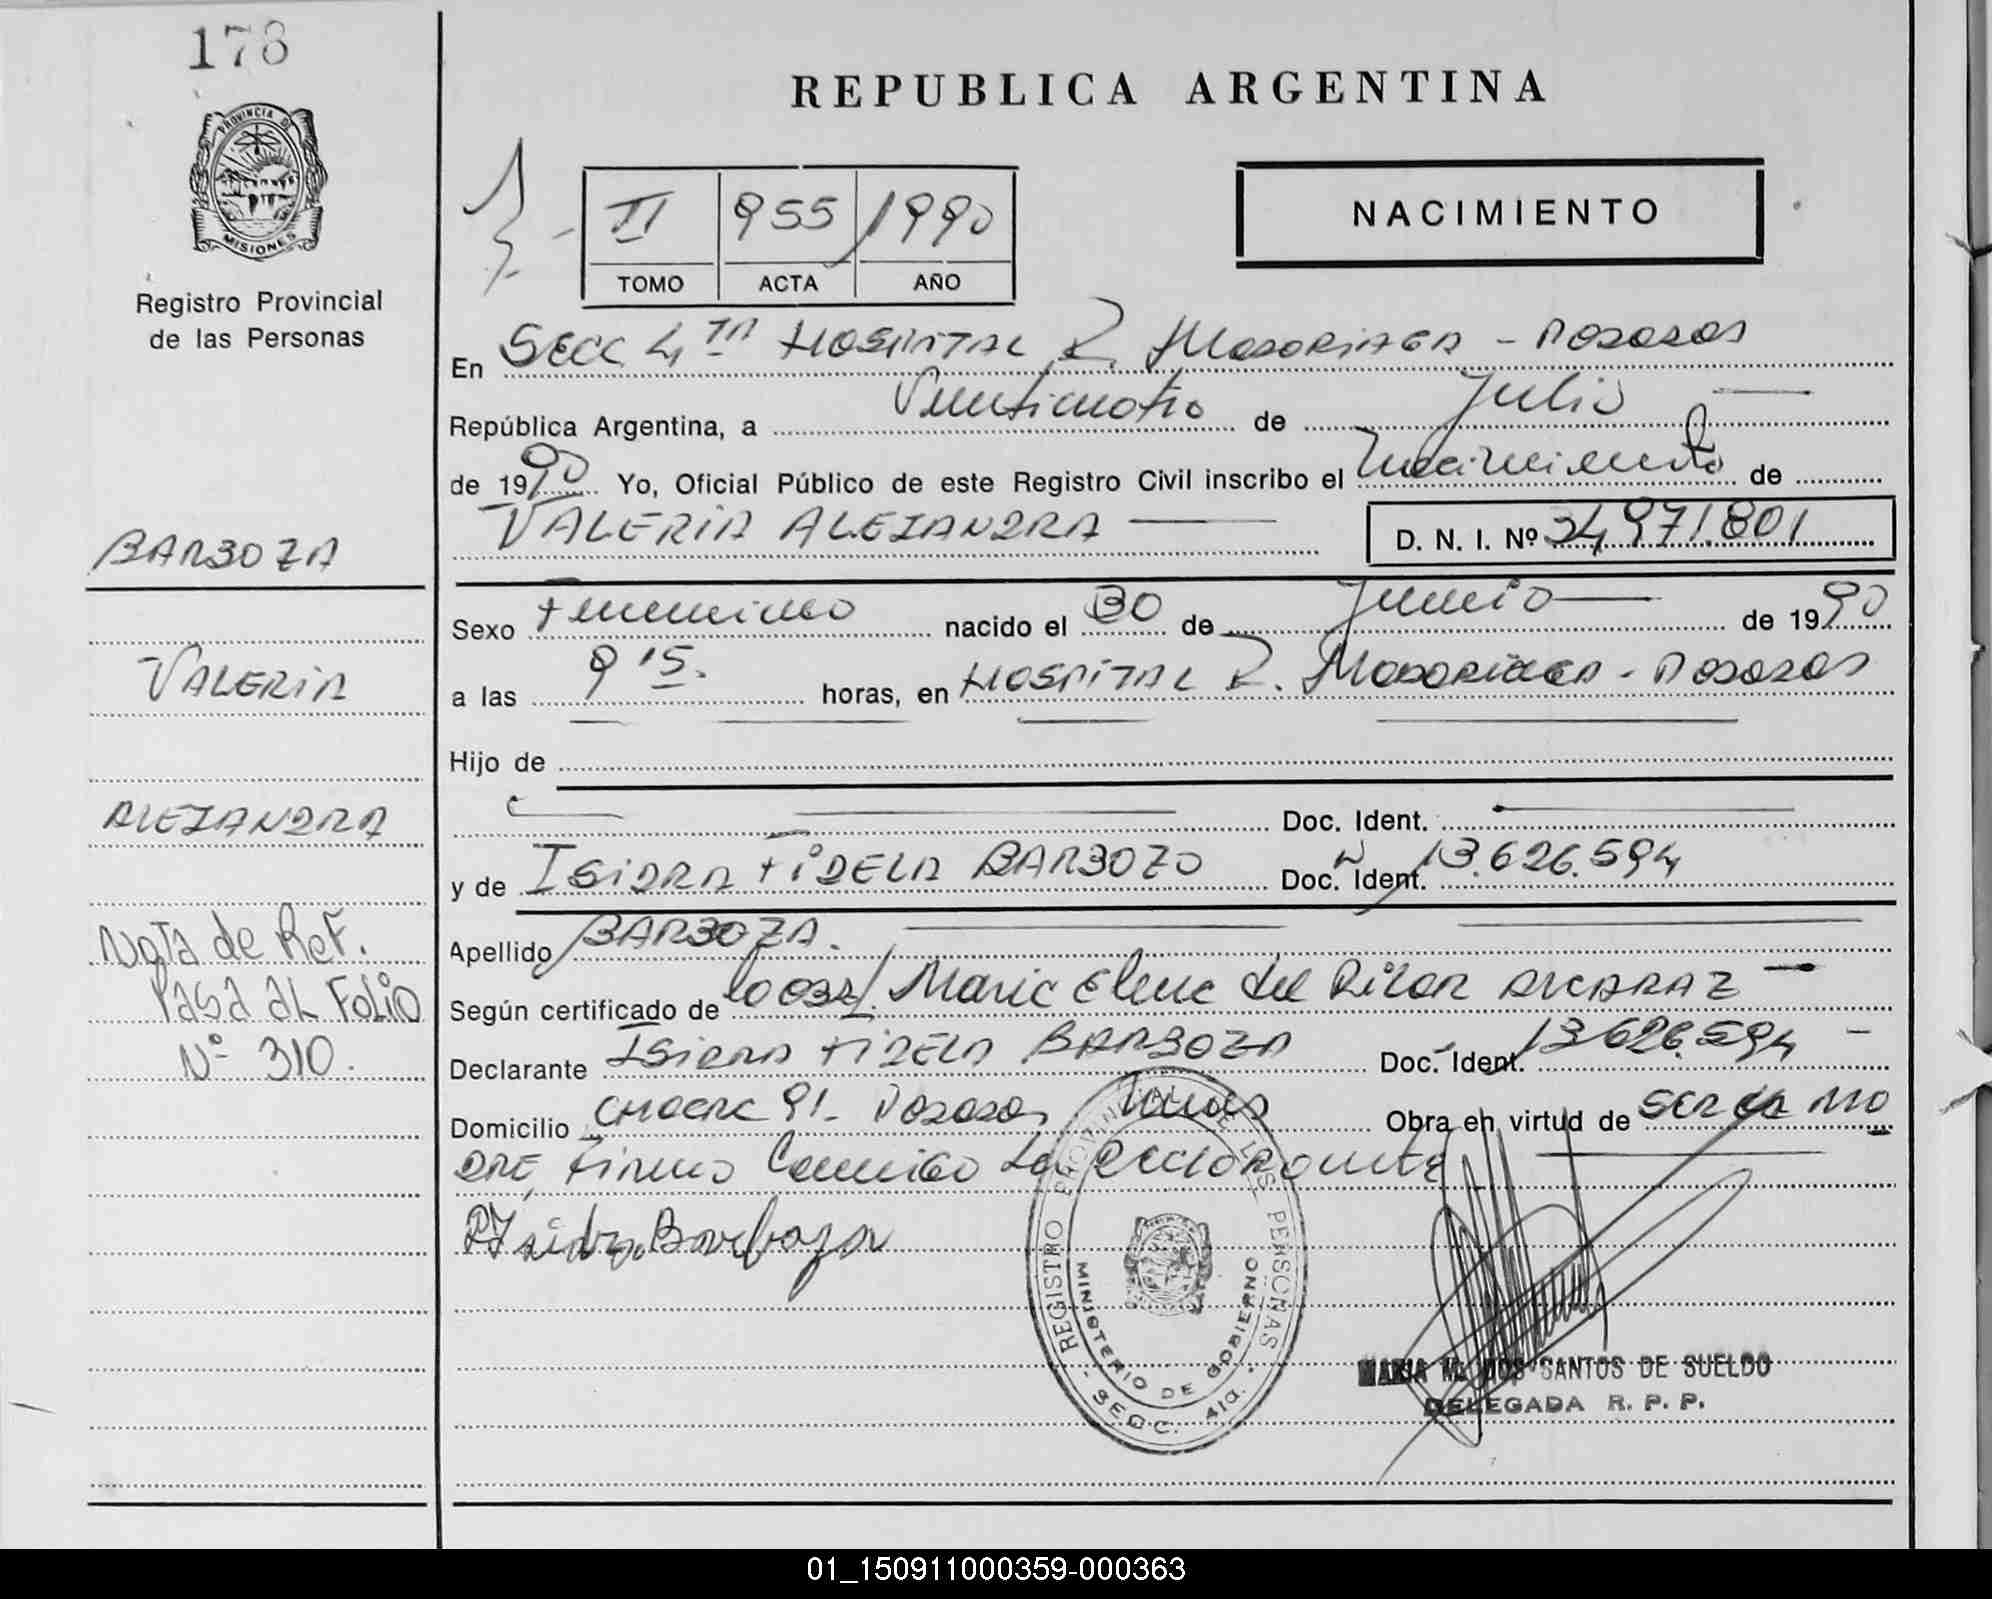 178
PROVINCIA DE
MISIONES
Registro Provincial
de las Personas
BARBOZA
VALERIA
ALEJANDRA
Nota de Ref.
Pasa al Folio
Nº 310.
REPUBLICA ARGENTINA
II 955 1990
TOMO ACTA AÑO
NACIMIENTO
En SECC 4ta HOSPITAL R. Madariaga - Posadas
República Argentina, a Veinticuatro de Julio
de 1990 Yo, Oficial Público de este Registro Civil inscribo el Nacimiento de
VALERIA ALEJANDRA D. N. I. Nº 34.971.801
Sexo Femenino nacido el 30 de Junio de 1990
a las 9 15. horas, en HOSPITAL R. Madariaga - Posadas
Hijo de
Doc. Ident.
y de ISIDRA FIDELA BARBOZO Doc. Ident. 13.626.594
Apellido BARBOZA.
Según certificado de Maria Elena del Pilar ALCARAZ
Declarante ISIDRA FIDELA BARBOZA Doc. Ident. 13.626.594 -
Domicilio CHACRA 91- Posadas Obra en virtud de SER LA MA
DRE, Firma Conmigo La Declarante
Isidra Barboza
REGISTRO PROVINCIAL DE LAS PERSONAS
MINISTERIO DE GOBIERNO
SECC. 4ta.
MARIA M. DOS SANTOS DE SUELDO
DELEGADA R. P. P.
01_150911000359-000363